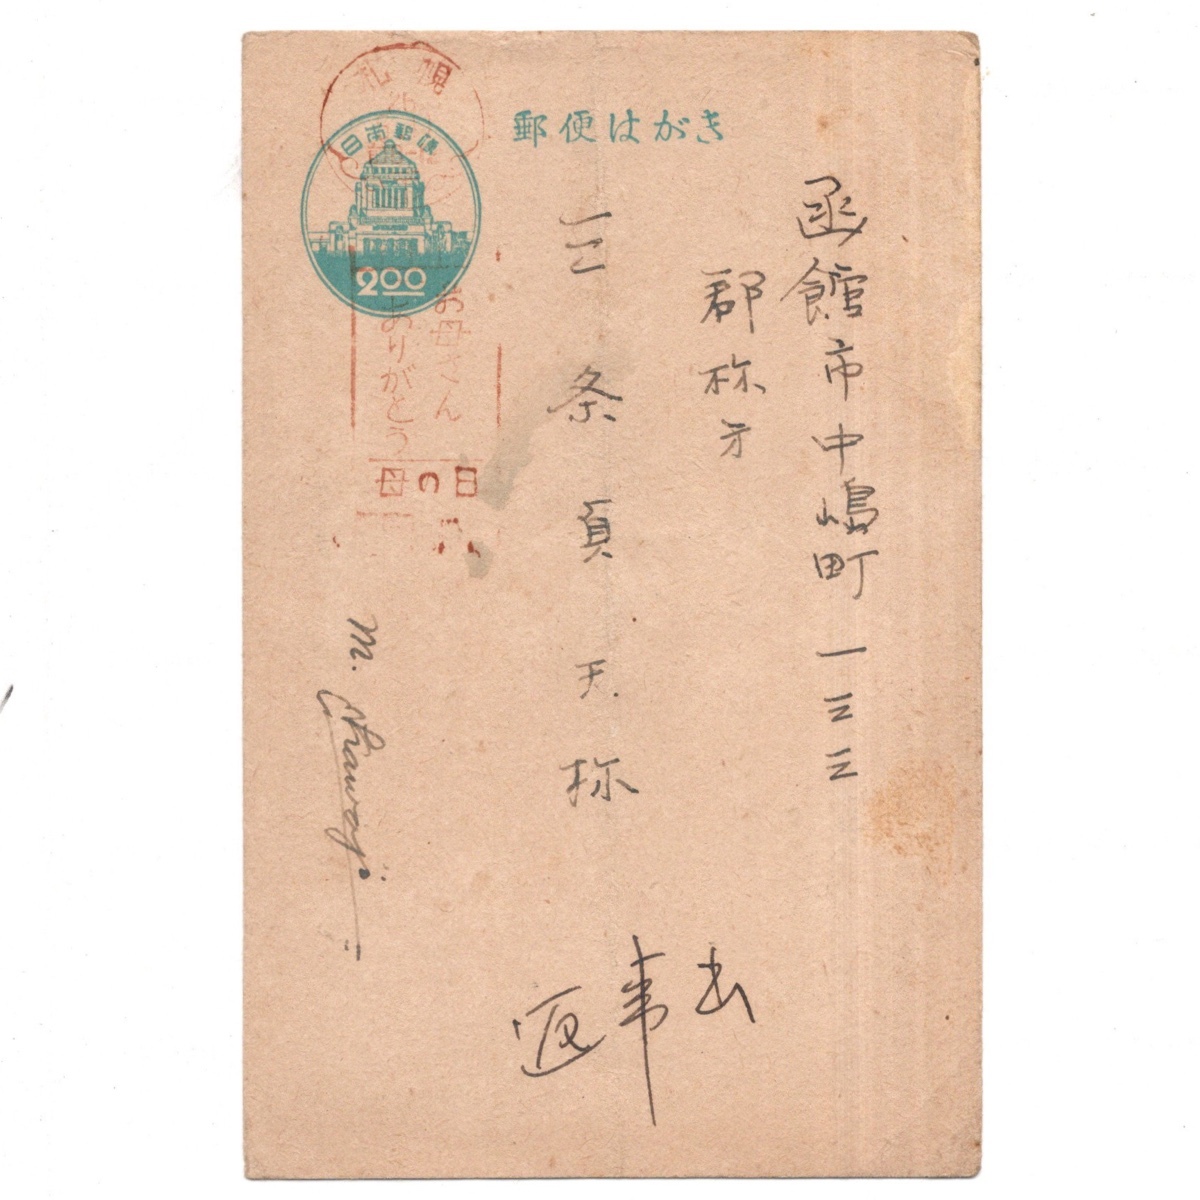 郵便はがき
日本郵便
2.00
札幌
お母さん
ありがとう
母の日
函館市中嶋町一三三
郡 様方
三条 貢 天 様
M.
返事 出